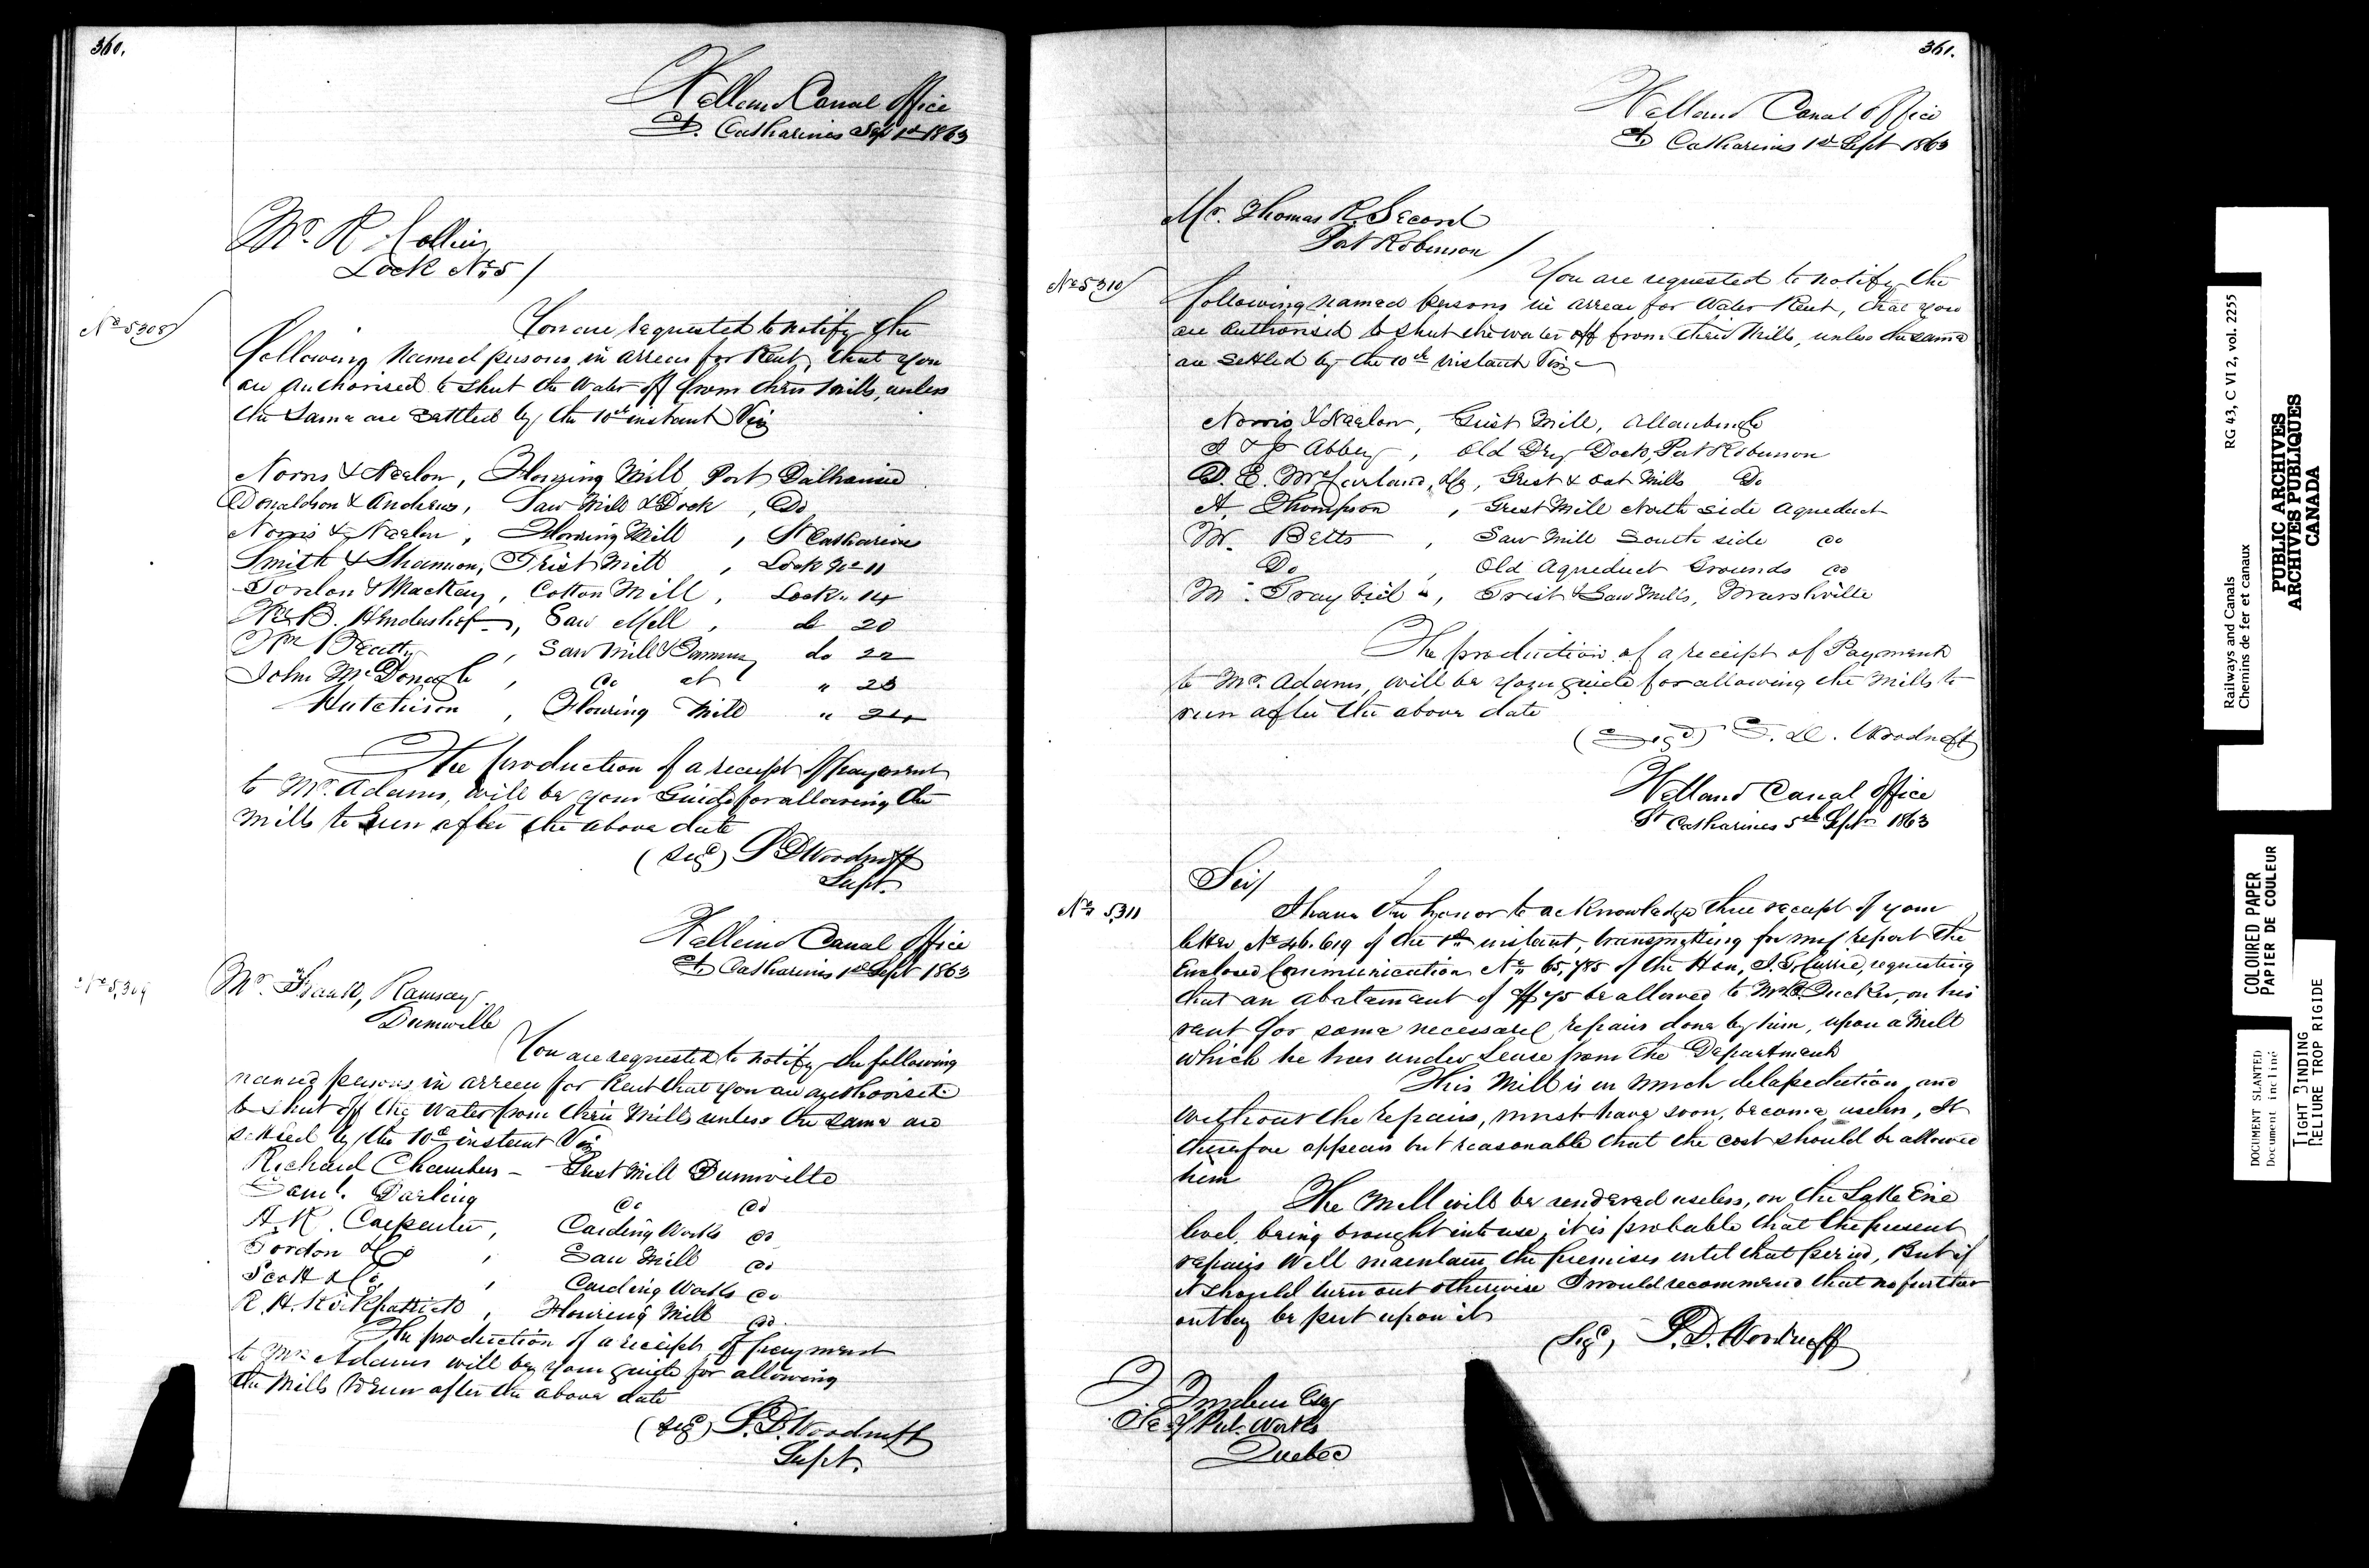 360.
Welland Canal Office
St. Catharines Sep 1st 1863
Mr. R Collier
Lock No. 5/
No 5308/
You are requested to notify the
following named persons in arrear for Rent, that you
are authorised to shut the Water off from their Mills, unless
the same are settled by the 10th instant Viz
Norris & Neelon, Flouring Mill, Port Dalhousie
Donaldson & Andrews, Saw Mill & Dock, Do
Norris & Neelon, Flouring Mill, St Catharines
Smith & Shannon, Grist Mill, Lock No 11
Gordon & Mackay, Cotton Mill, Lock " 14
W. B. Hendershot, Saw Mill, do 20
Wm Beatty, Saw Mill & Tannery do 22
John McDonagh, do at " 23
Hutchison, Flouring Mill " 24
The production of a receipt of payment
to Mr. Adams, will be your Guide for allowing the
Mills to Run after the above date
(Sigd) S D Woodruff
Supt.
Welland Canal Office
St Catharines 1st Sept 1863
No 5,309
Mr. Frank, Ramsay
Dunnville
You are requested to notify the following
named persons in arrear for Rent that you are authorised
to shut off the Water from their Mills unless the same are
settled by the 10th instant Viz
Richard Chambers - Grist Mill Dunnville
Saml. Darling do do
A. R. Carpenter, Carding Works do
Gordon & Co, Saw Mill do
Scott & Co, Carding Works do
R. H. Kirkpatrick, Flouring Mill do.
The production of a receipt of payment
to Mr. Adams will be your guide for allowing
the Mills to Run after the above date
(Sigd) S. D. Woodruff
Supt.
361.
Welland Canal Office
St Catharines 1st Sept 1863
Mr. Thomas R. Secord
Port Robinson /
No 5310/
You are requested to notify the
following named persons in arrear for Water Rent, that you
are authorised to shut the water off from their Mills, unless the same
are settled by the 10th instant Viz
Norris & Neelon, Grist Mill, Allanburgh
J & P Abbey, Old Dry Dock, Port Robinson
D. E. McFarland, &c, Grist & Oat Mills Do
A. Thompson, Grist Mill North side Aqueduct
W. Betts, Saw Mill South side do
Do, Old Aqueduct Grounds do
M. Graybiel, Grist & Saw Mills, Marshville
The production of a receipt of Payment
to Mr. Adams, will be your guide for allowing the Mills to
run after the above date
(Sigd) S. D. Woodruff
Welland Canal Office
St Catharines 5th Sept 1863
Sir/
No 5311
I have the honor to acknowledge the receipt of your
letter No 46.619 of the 1st instant, transmitting for my report the
Enclosed Communication No 65,785 of the Hon, J. G. Currie, requesting
that an abatement of $45 be allowed to Mr. Tucker, on his
rent for some necessary repairs done by him, upon a Mill
which he has under Lease from the Department
This Mill is in much delapedation, and
without the repairs, must have soon, become useless, It
therefore appears but reasonable that the cost should be allowed
him
The Mill will be rendered useless, on the Lake Erie
level, being brought into use, it is probable that the present
repairs will maintain the premises until that period, But if
it should turn out otherwise I would recommend that no further
outlay be put upon it
(Sigd) S. D. Woodruff
T. Trudeau Esq
Sec of Pub. Works
Quebec
Railways and Canals RG 43, C VI 2, vol. 2255
Chemins de fer et canaux
PUBLIC ARCHIVES
ARCHIVES PUBLIQUES
CANADA
COLOURED PAPER
PAPIER DE COULEUR
DOCUMENT SLANTED
Document incliné
TIGHT BINDING
RELIURE TROP RIGIDE